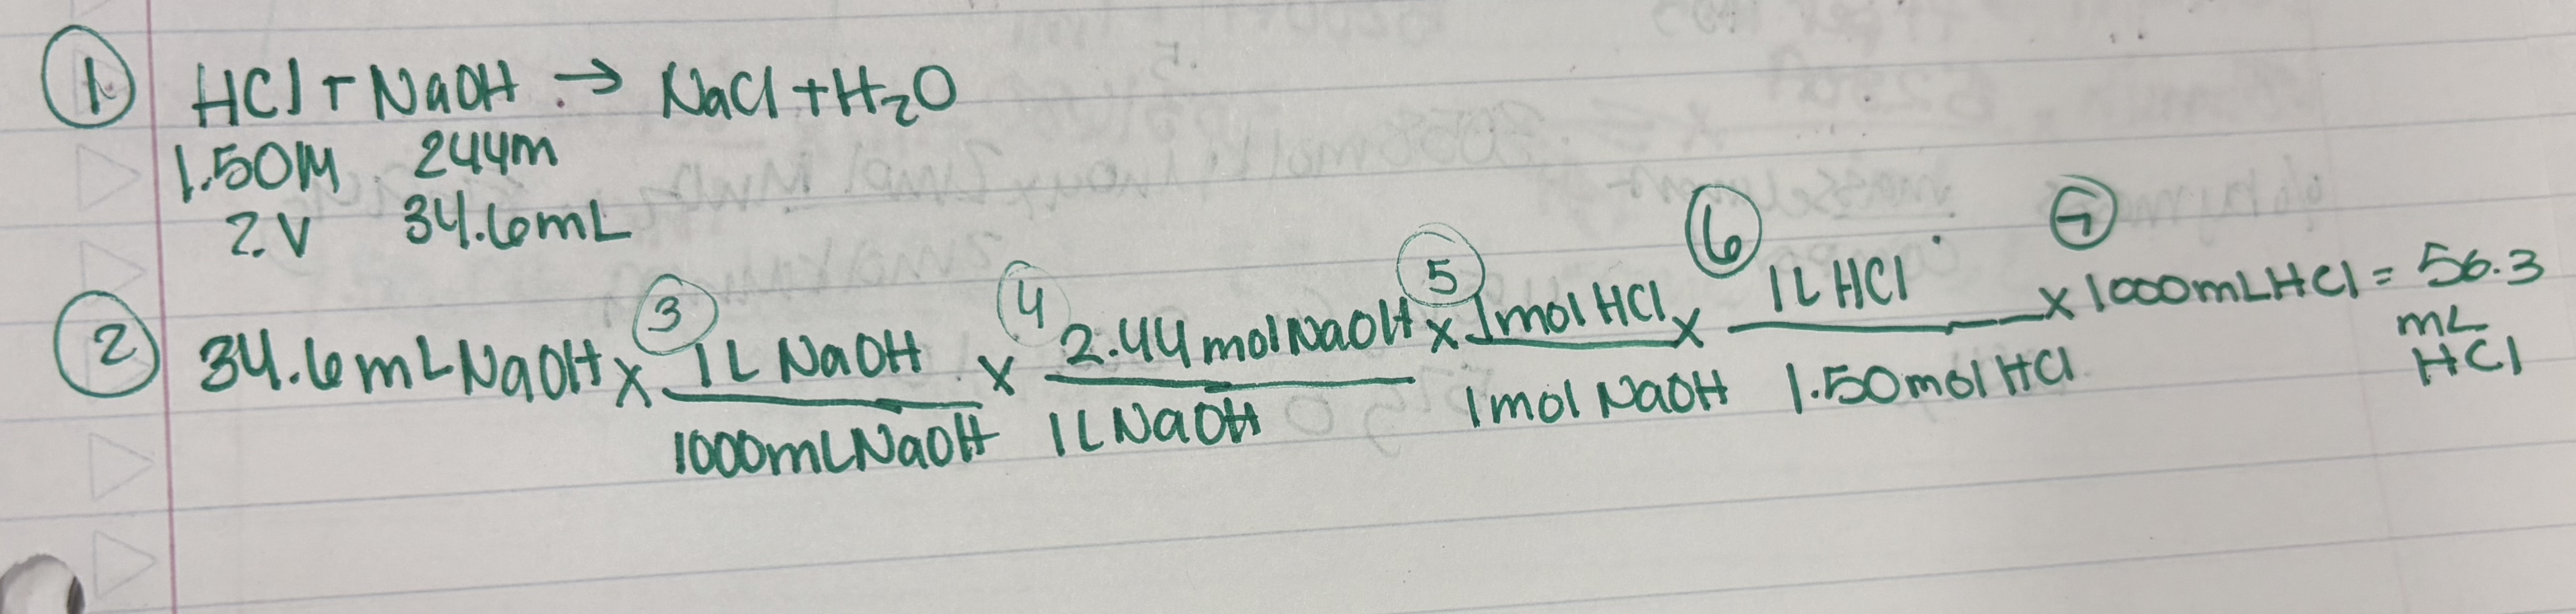 ① HCl + NaOH → NaCl + H₂O
1.50M 244m
?V 34.6mL
② 34.6mLNaOH x ③ 1L NaOH / 1000mLNaOH x ④ 2.44molNaOH / 1LNaOH x ⑤ 1molHCl / 1mol NaOH x ⑥ 1L HCl / 1.50mol HCl x ⑦ 1000mLHCl = 56.3
mL
HCl